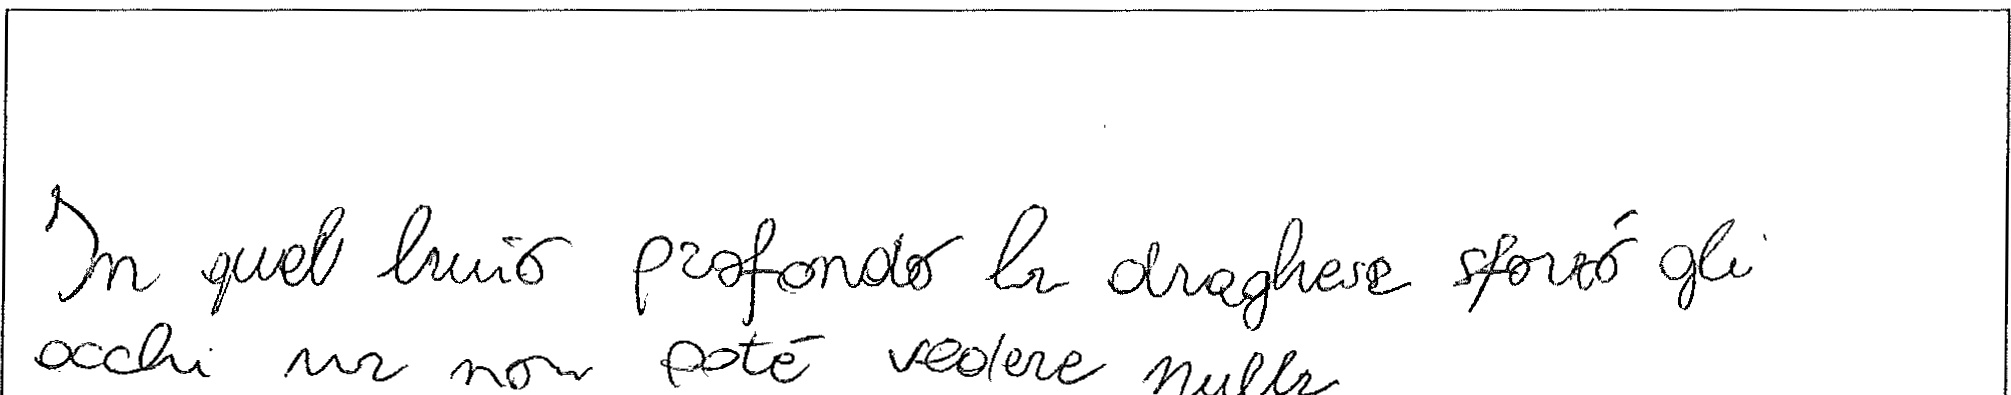 In quel buio profondo la draghese sforzó gli
occhi ma non poté vedere nulla